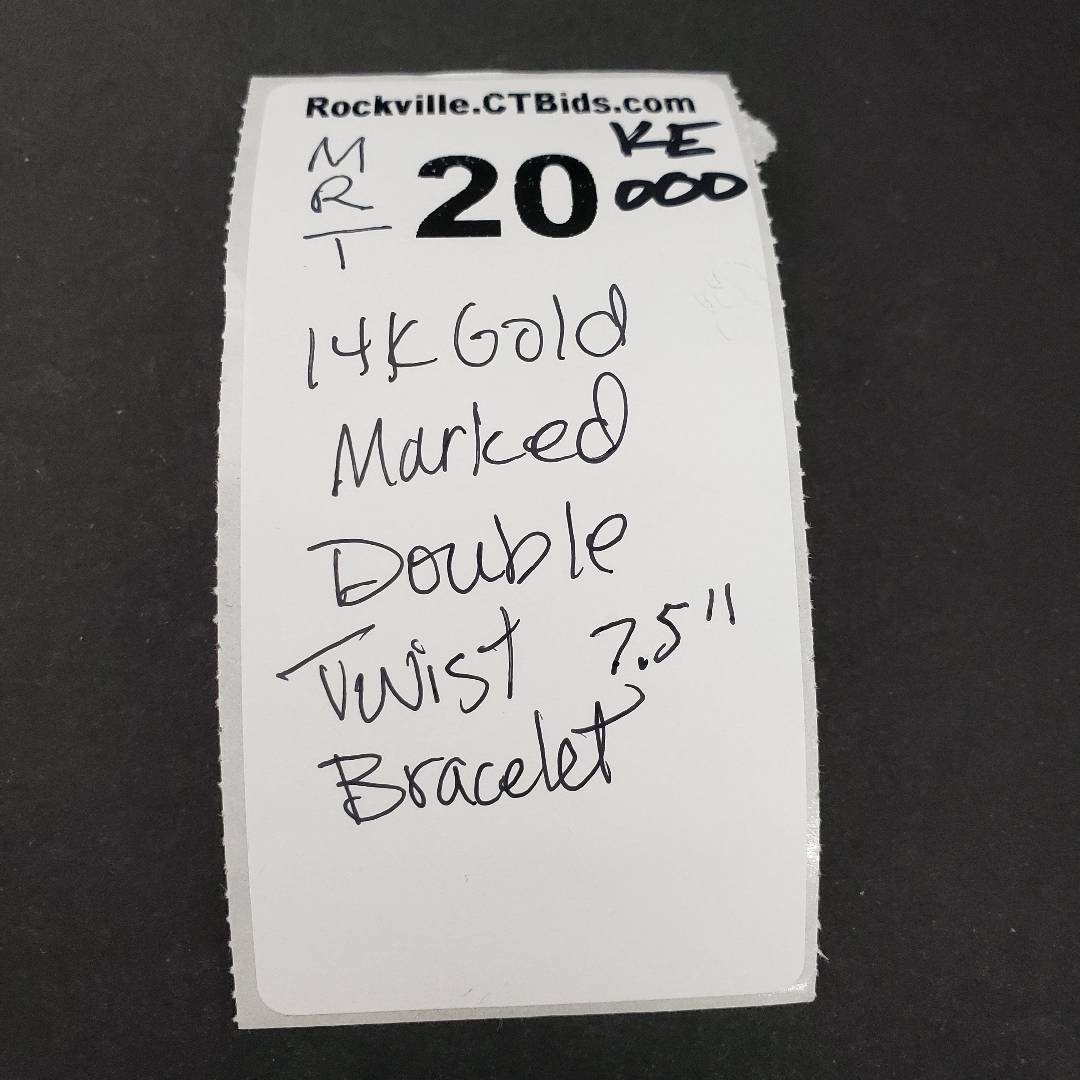 Rockville.CTBids.com
M
R
T
20
KE
000
14K Gold
Marked
Double
Twist 7.5"
Bracelet